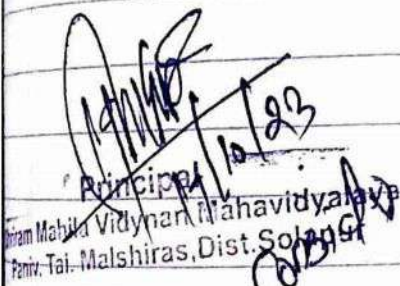 14/10/23
Principal
Shriram Mahila Vidynan Mahavidyalaya
Paniv. Tal. Malshiras, Dist. Solapur